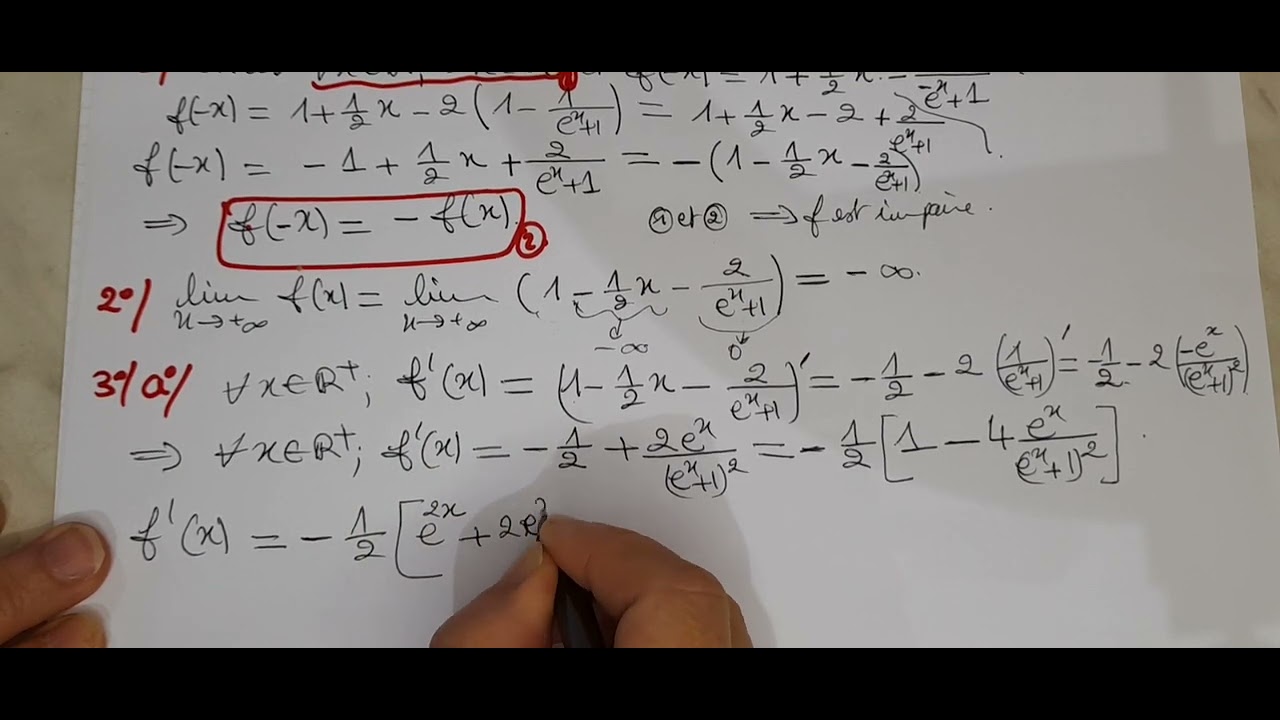 f(-x) = 1 + 1/2 x - 2 (1 - 1/(e^x+1)) = 1 + 1/2 x - 2 + 2/(e^x+1)
f(-x) = - 1 + 1/2 x + 2/(e^x+1) = - (1 - 1/2 x - 2/(e^x+1))
⟹ f(-x) = - f(x). ② ① et ② ⟹ f est impaire.
2°/ lim x→+∞ f(x) = lim x→+∞ (1 - 1/2 x - 2/(e^x+1)) = - ∞.
-∞ 0
3°/ a°/ ∀x∈ℝ⁺; f'(x) = (1 - 1/2 x - 2/(e^x+1))' = - 1/2 - 2 (1/(e^x+1))' = - 1/2 - 2 (-e^x/(e^x+1)²)
⟹ ∀x∈ℝ⁺; f'(x) = - 1/2 + 2e^x/(e^x+1)² = - 1/2 [1 - 4 e^x/(e^x+1)²].
f'(x) = - 1/2 [e^2x + 2e